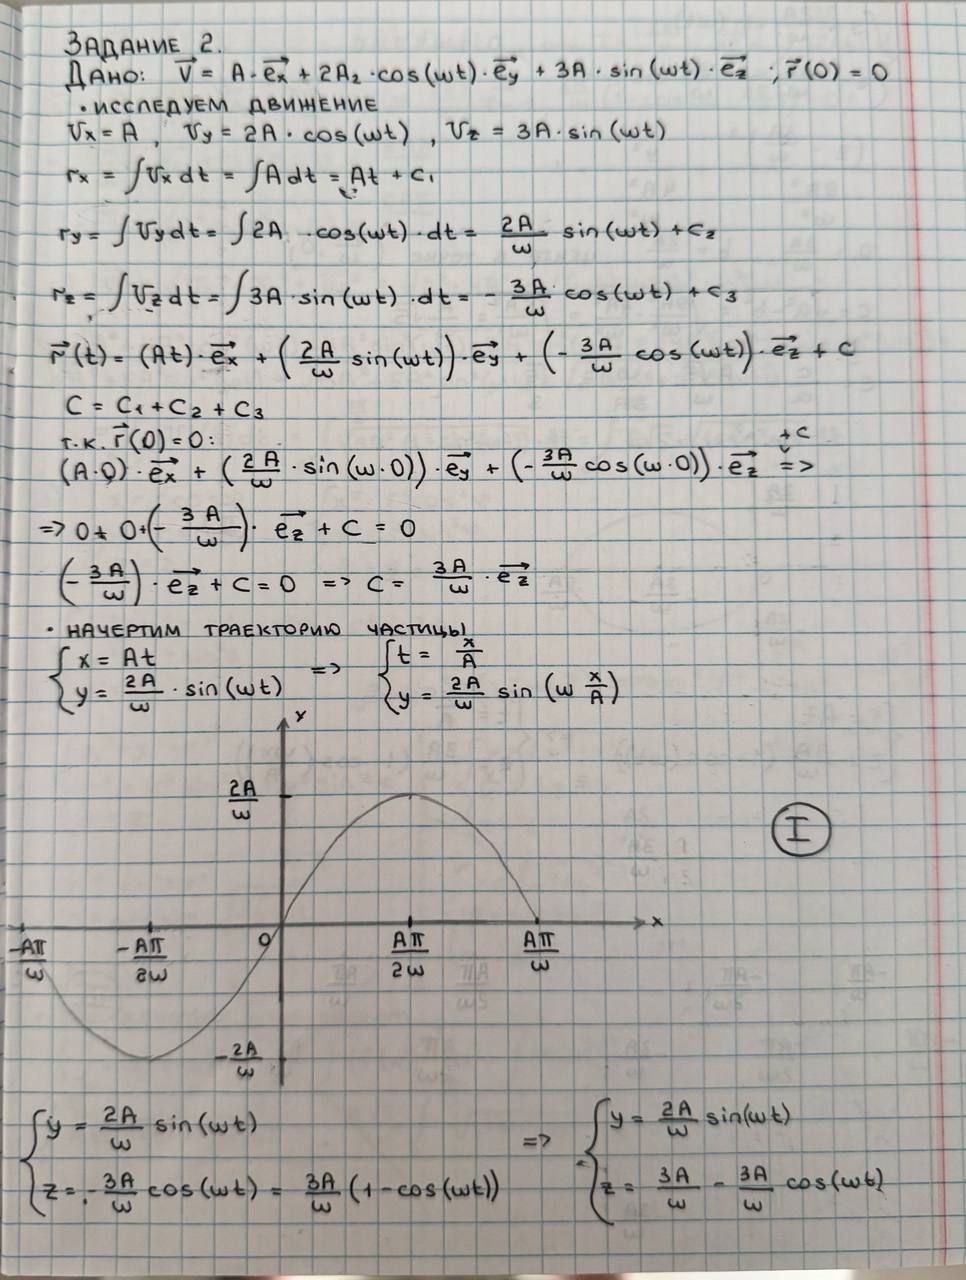 ЗАДАНИЕ 2.
ДАНО: V⃗ = A·e⃗x + 2A₂·cos(ωt)·e⃗y + 3A·sin(ωt)·e⃗z ; r⃗(0) = 0
• ИССЛЕДУЕМ ДВИЖЕНИЕ
Vx = A , Vy = 2A·cos(ωt) , Vz = 3A·sin(ωt)
rx = ∫Vx dt = ∫A dt = At + C₁
ry = ∫Vy dt = ∫2A·cos(ωt)·dt = 2A/ω sin(ωt) + C₂
rz = ∫Vz dt = ∫3A·sin(ωt)·dt = - 3A/ω cos(ωt) + C₃
r⃗(t) = (At)·e⃗x + (2A/ω sin(ωt))·e⃗y + (- 3A/ω cos(ωt))·e⃗z + C
C = C₁ + C₂ + C₃
т.к. r⃗(0) = 0:
(A·0)·e⃗x + (2A/ω·sin(ω·0))·e⃗y + (- 3A/ω cos(ω·0))·e⃗z +C =>
=> 0 + 0 + (- 3A/ω)·e⃗z + C = 0
(- 3A/ω)·e⃗z + C = 0 => C = 3A/ω·e⃗z
• НАЧЕРТИМ ТРАЕКТОРИЮ ЧАСТИЦЫ
{ x = At => { t = x/A
{ y = 2A/ω·sin(ωt) { y = 2A/ω sin(ω x/A)
y
2A/ω
I
x
-Aπ/ω -Aπ/2ω 0 Aπ/2ω Aπ/ω
-2A/ω
{ y = 2A/ω sin(ωt) => { y = 2A/ω sin(ωt)
{ z = - 3A/ω cos(ωt) = 3A/ω (1 - cos(ωt)) { z = 3A/ω - 3A/ω cos(ωt)